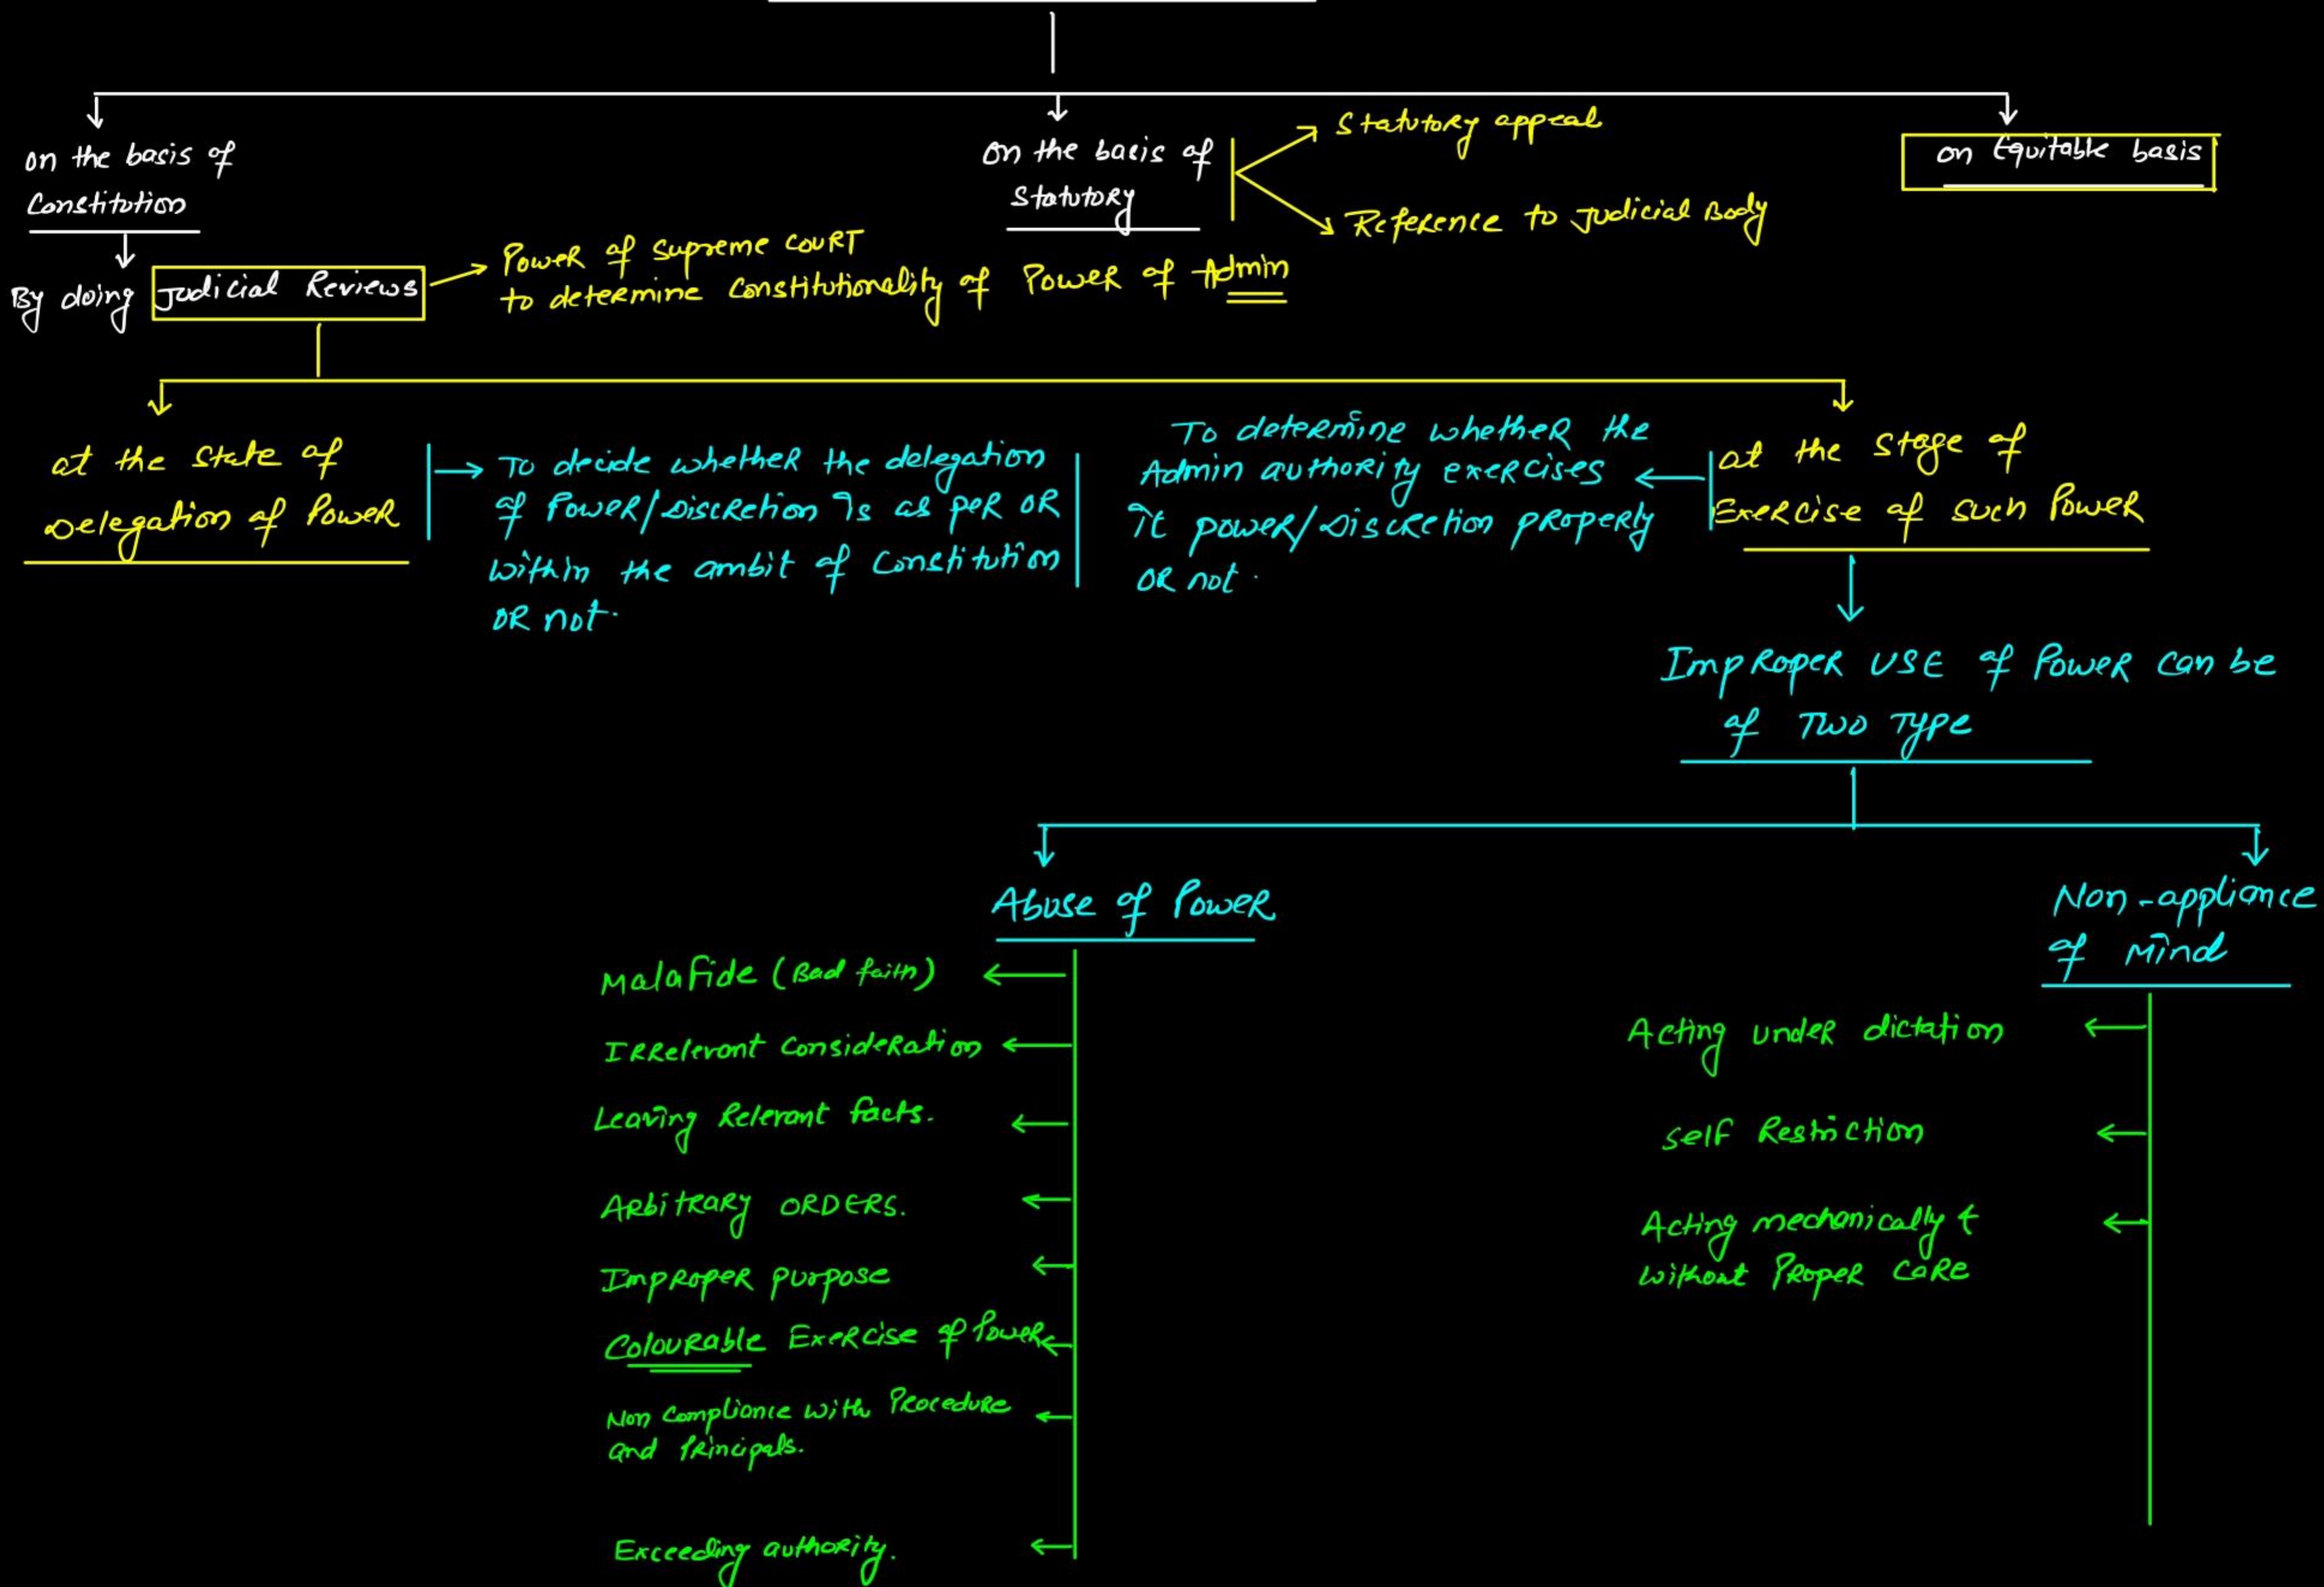 on the basis of
Constitution
By doing Judicial Reviews
Power of Supreme Court
to determine Constitutionality of Power of Admin
on the basis of
Statutory
Statutory appeal
Reference to Judicial Body
on Equitable basis
at the State of
Delegation of Power
To decide whether the delegation
of Power/Discretion is as per OR
within the ambit of Constitution
OR not.
To determine whether the
Admin authority exercises
it power/Discretion properly
OR not.
at the Stage of
Exercise of such Power
Improper USE of Power can be
of Two Type
Abuse of Power
Malafide (Bad faith)
Irrelevant Consideration
Leaving Relevant facts.
Arbitrary ORDERS.
Improper purpose
Colourable Exercise of Power
Non Compliance with Procedure
and Principals.
Exceeding authority.
Non-appliance
of Mind
Acting under dictation
self Restriction
Acting mechanically &
without Proper Care